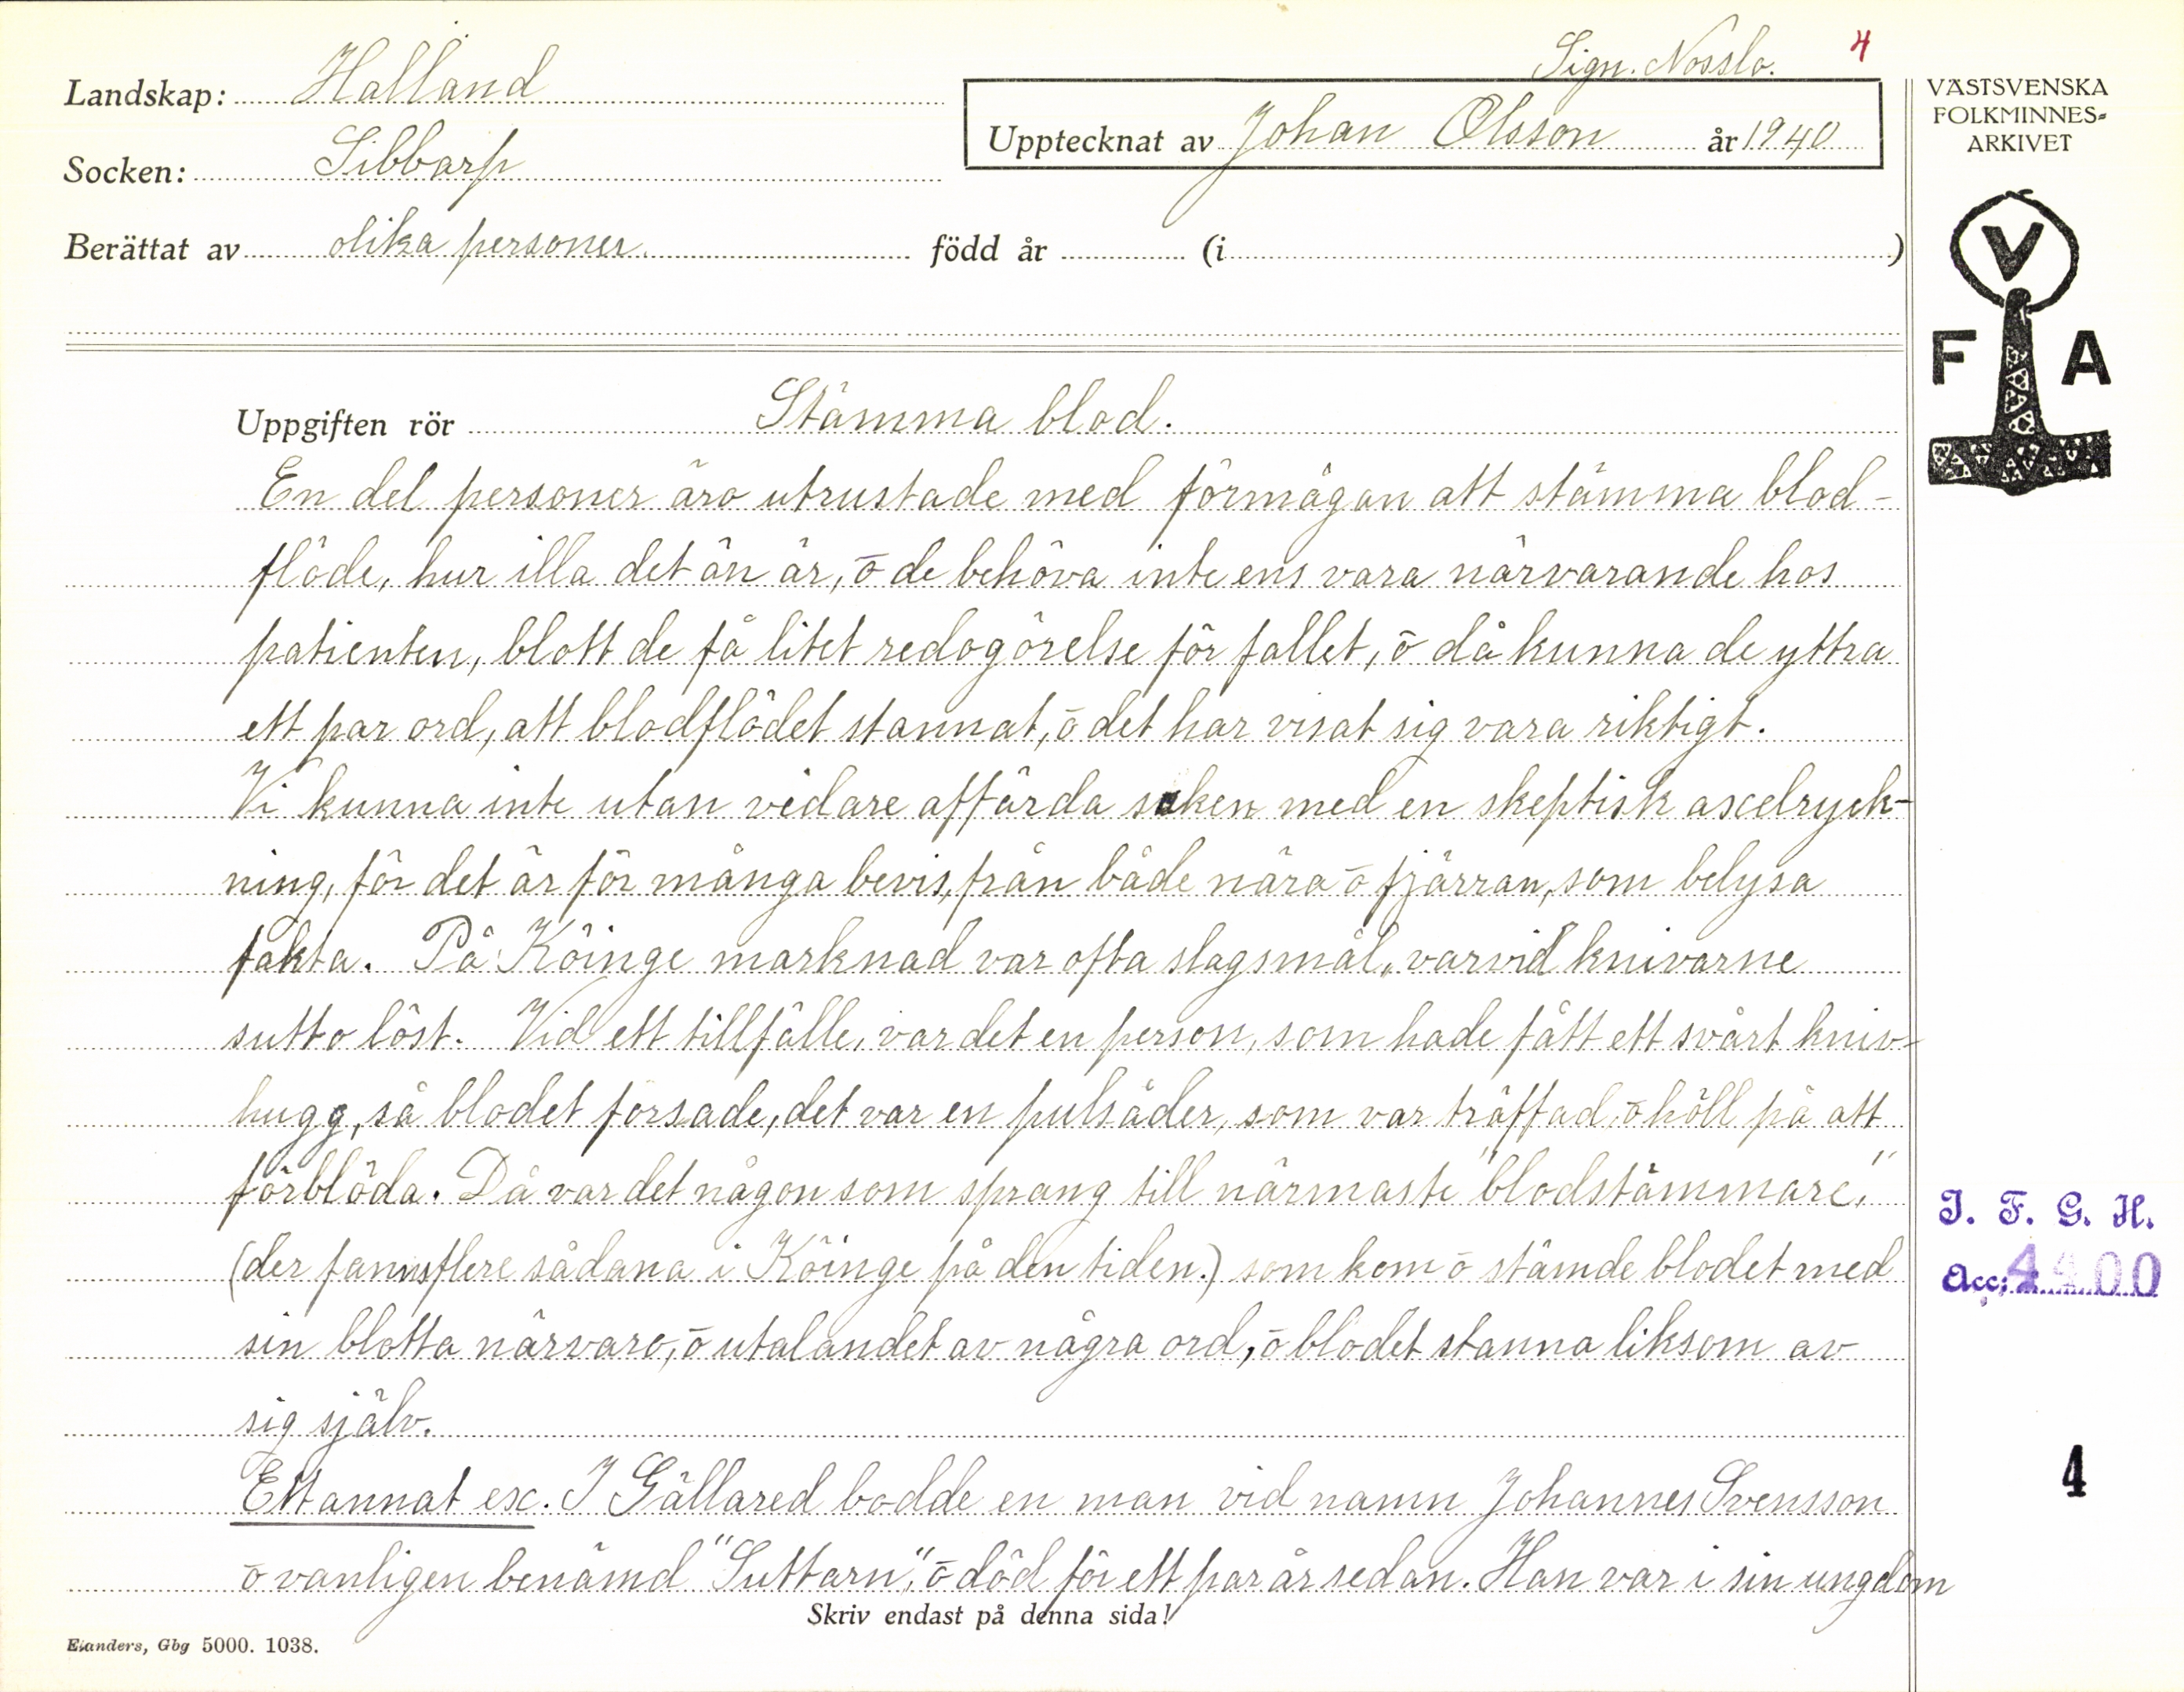 Sign. Nosslo. 4
Landskap: Halland
Upptecknat av Johan Olsson år 1940
Socken: Sibbarp
Berättat av olika personer. född år (i )
VÄSTSVENSKA
FOLKMINNES=
ARKIVET
V
F A
Uppgiften rör Stämma blod.
En del personer äro utrustade med förmågan att stämma blod-
flöde, hur illa det än är, o de behöva inte ens vara närvarande hos
patienten, blott de få litet redogörelse för fallet, o då kunna de yttra
ett par ord, att blodflödet stannat, o det har visat sig vara riktigt.
Vi kunna inte utan vidare affärda saken med en skeptisk axelryck-
ning, för det är för många bevis, från både nära o fjärran, som belysa
fakta. På Köinge marknad var ofta slagsmål, varvid knivarne
sutto löst. Vid ett tillfälle, var det en person, som hade fått ett svårt kniv-
hugg, så blodet forsade, det var en pulsåder, som var träffad, o höll på att
förblöda. Då var det någon som sprang till närmaste "blodstämmare",
(der fanns flere sådana i Köinge på den tiden.) som kom o stämde blodet med
sin blotta närvaro, o utalandet av några ord, o blodet stanna liksom av
sig själv.
Ett annat ex. I Gällared bodde en man vid namn Johannes Svensson
o vanligen benämd "Suttarn", o död för ett par år sedan. Han var i sin ungdom
Skriv endast på denna sida!
Elanders, Gbg 5000. 1038.
I. F. G. H.
Acc: 4400
4